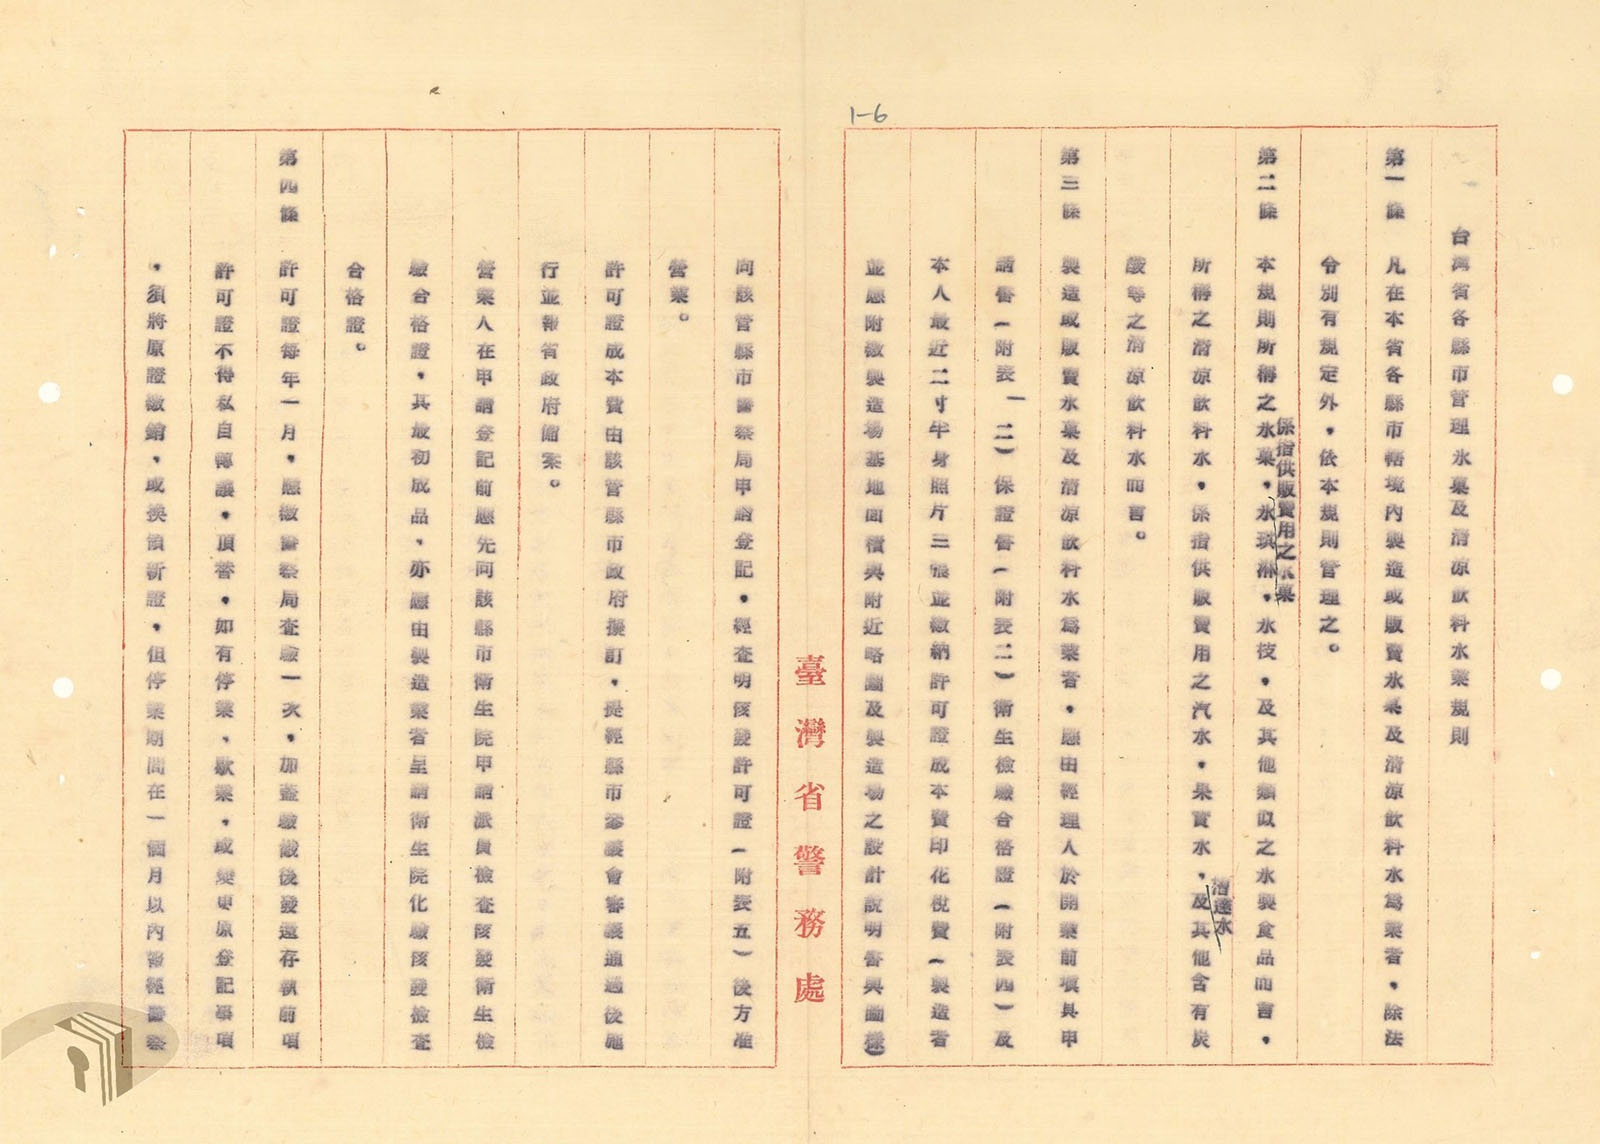 1-6
台灣省各縣市管理氷菓及清涼飲料水業規則
第一條 凡在本省各縣市轄境內製造或販賣氷菓及清涼飲料水為業者,除法
令別有規定外,依本規則管理之。
第二條 本規則所稱之氷菓,氷琪淋,氷枝,及其他類似之氷製食品而言,
係指供販賣用之氷菓
所稱之清涼飲料水,係指供販賣用之汽水,果實水,及其他含有炭
沿達水
酸等之清涼飲料水而言。
第三條 製造或販賣氷菓及清涼飲料水為業者,應由經理人於開業前填具申
請書(附表一 二)保證書(附表二)衛生檢驗合格證(附表四)及
本人最近二寸半身照片三張並繳納許可證成本費印花稅費(製造者
並應附繳製造場基地面積與附近略圖及製造場之設計說明書與圖樣)
臺灣省警務處
向該管縣市警察局申請登記,經查明核發許可證(附表五)後方准
營業。
許可證成本費由該管縣市政府擬訂,提經縣市參議會審議通過後施
行並報省政府備案。
營業人在申請登記前應先向該縣市衛生院申請派員檢查核發衛生檢
驗合格證,其最初成品,亦應由製造業者呈請衛生院化驗核發檢查
合格證。
第四條 許可證每年一月,應繳警察局查驗一次,加蓋驗戳後發還存執前項
許可證不得私自轉讓,頂替,如有停業、歇業,或變更原登記事項
,須將原證繳銷,或換領新證,但停業期間在一個月以內報經警察